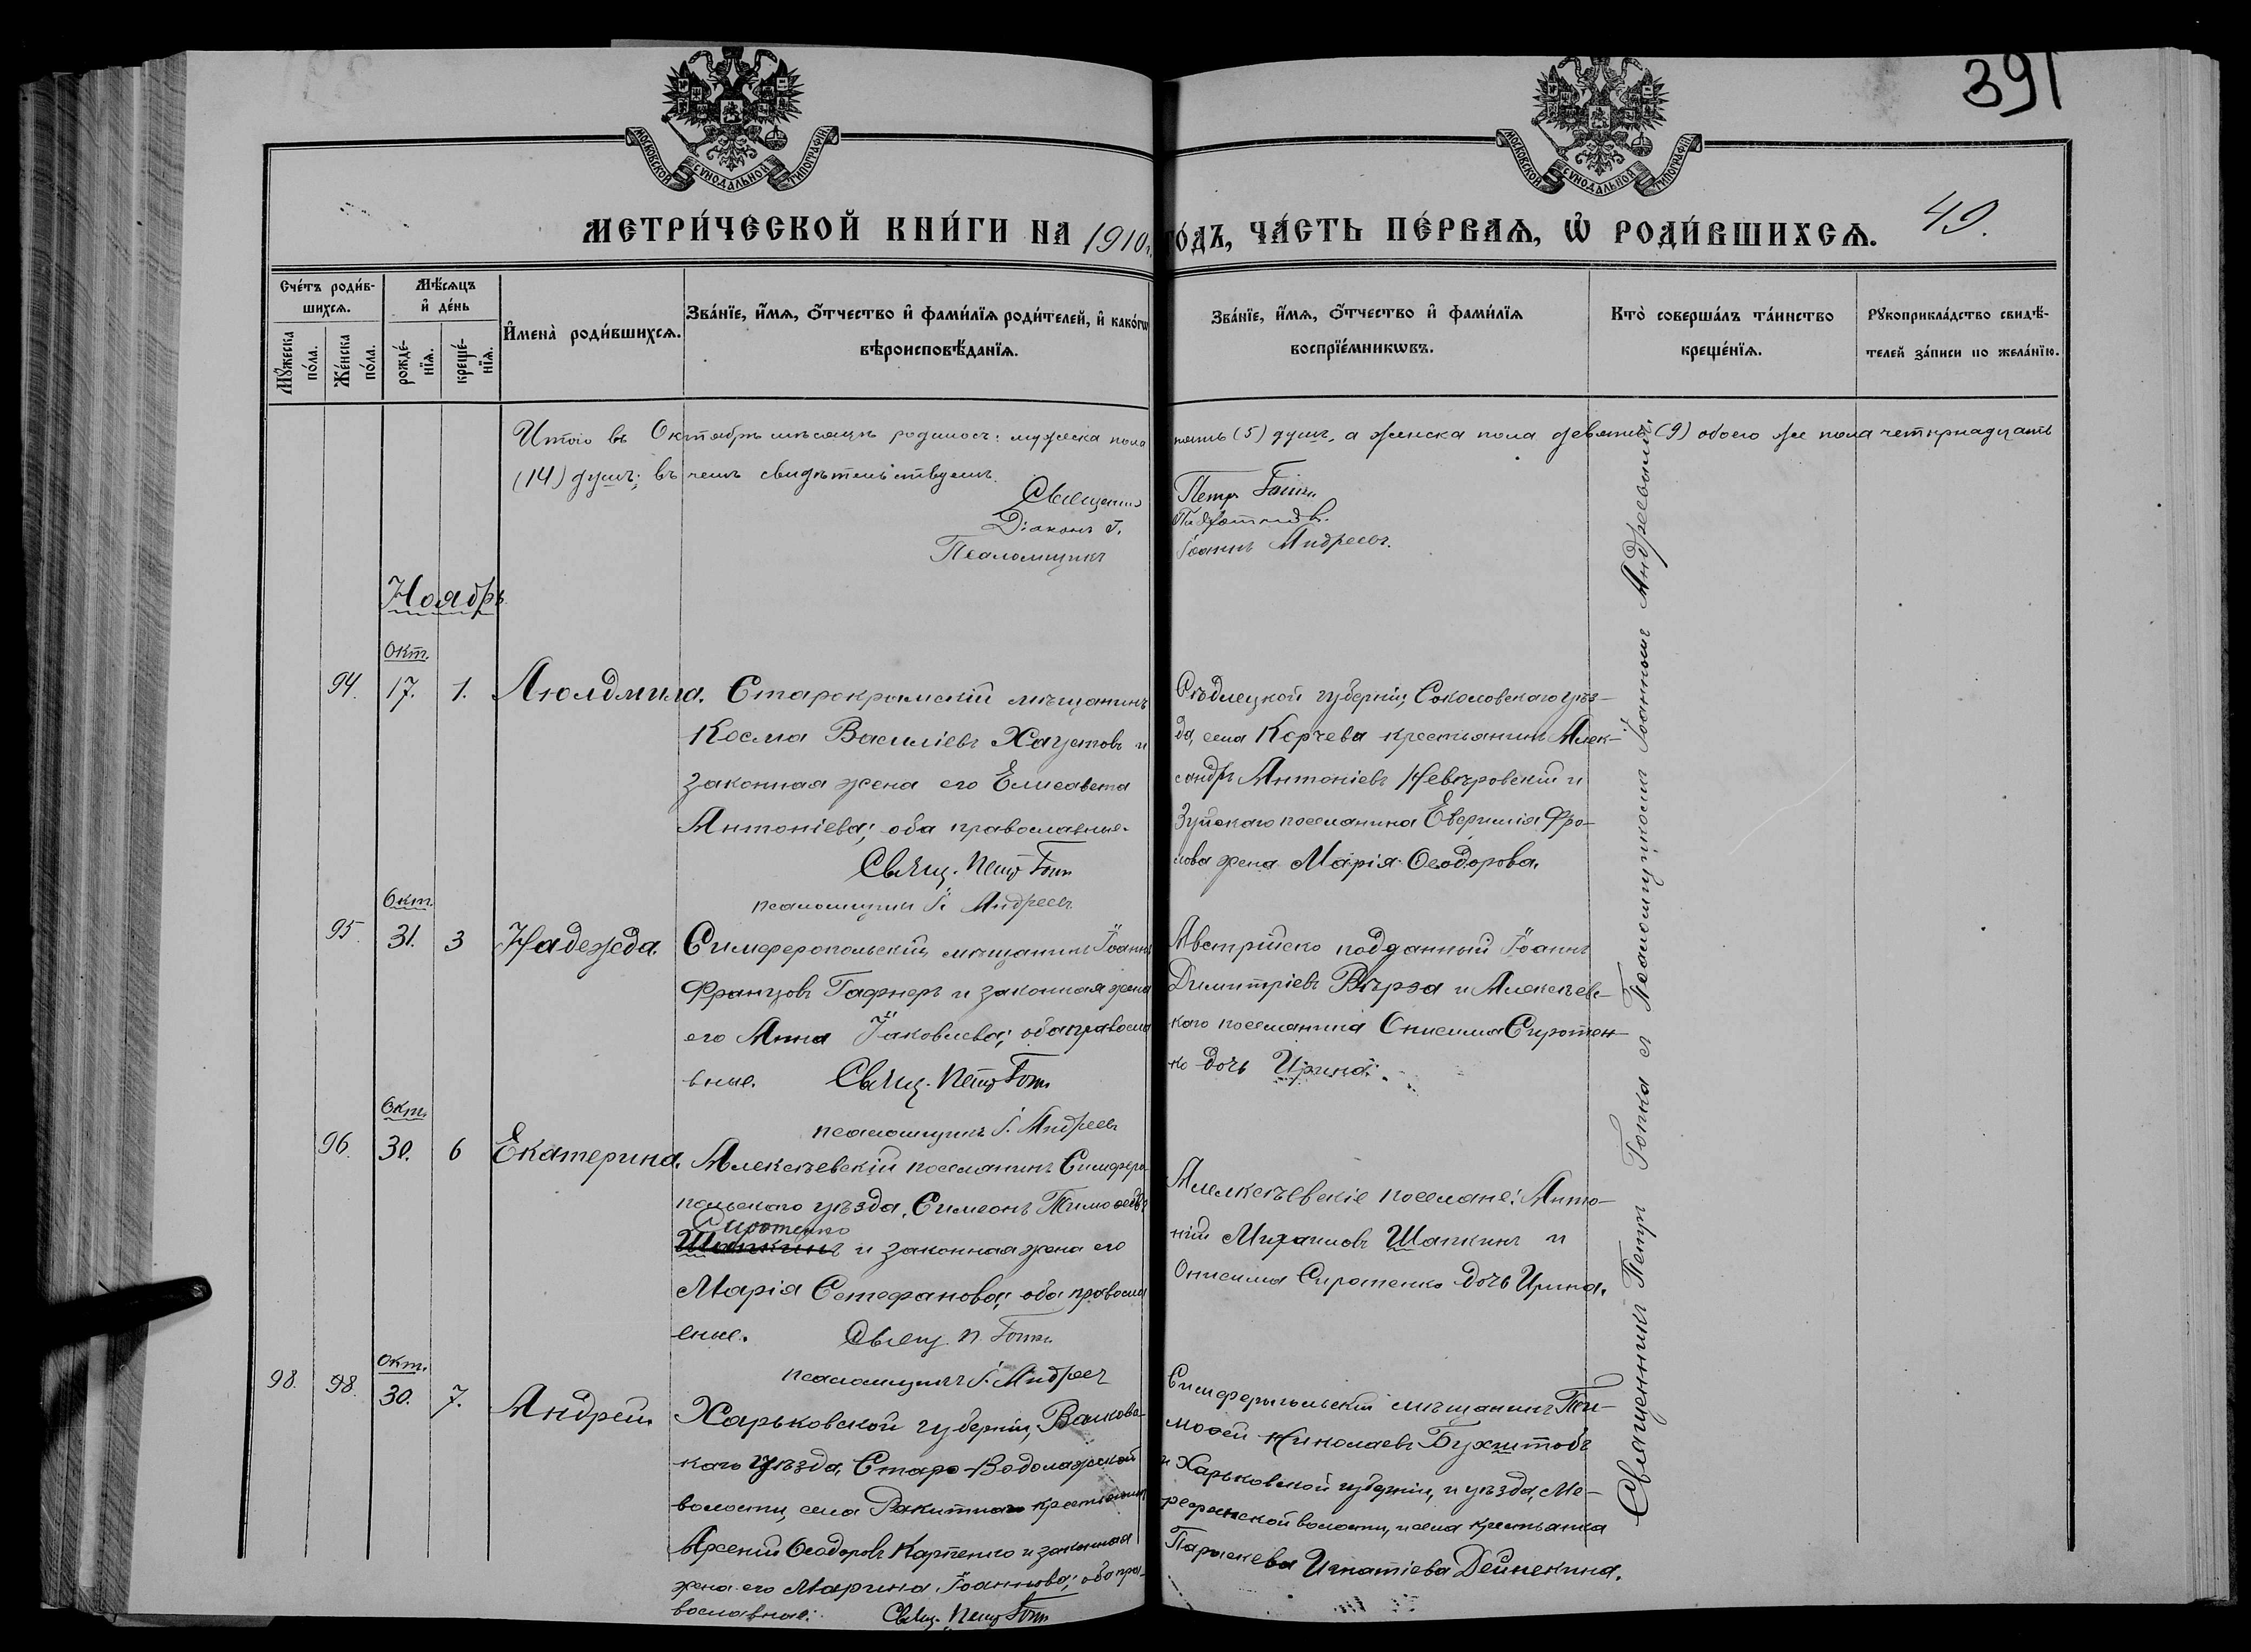 391
МОСКОВСКОЙ СѴНОДАЛЬНОЙ ТИПОГРАФІИ
МОСКОВСКОЙ СѴНОДАЛЬНОЙ ТИПОГРАФІИ
МЕТРИ́ЧЕСКОЙ КНИ́ГИ НА 1910 г. ГО́ДЪ, ЧА́СТЬ ПЕ́РВАѦ, Ѡ҆ РОДИ́ВШИХСѦ. 49.
Сче́тъ роди́в-
шихсѧ.
Мꙋ́жеска
по́ла.
Же́нска
по́ла.
Мѣ́сѧцъ
и҆ де́нь
рожде́-
нїѧ.
креще́-
нїѧ.
И҆мена̀ роди́вшихсѧ.
Зва́нїе, и҆́мѧ, ѻ҆́тчество и҆ фами́лїѧ роди́телей, и҆ како́гѡ
вѣроисповѣ́данїѧ.
Зва́нїе, и҆́мѧ, ѻ҆́тчество и҆ фами́лїѧ
воспрїе́мникѡвъ.
Кто̀ соверша́лъ та́инство
креще́нїѧ.
Рꙋкоприкла́дство свидѣ́-
телей за́писи по жела́нїю.
Итого въ Октябрѣ мѣсяцѣ родилось: мужеска пола пять (5) душъ, а женска пола девять (9) обоего же пола четырнадцать
(14) душъ; въ чемъ свидѣтельствуемъ.
Священникъ Петръ
Діаконъ
Псаломщикъ Іоаннъ Андреевъ.
Ноябрь
Окт.
94. 17. 1. Людмила. Старокрымскій мѣщанинъ
Косма Василіевъ Хаустовъ и
законная жена его Елисавета
Антоніева; оба православные.
Свящ. Петр
псаломщикъ І. Андреевъ
Сѣдлецкой губерніи, Соколовскаго уѣз-
да, села Корчева крестьянинъ Алек-
сандръ Антоніевъ Невѣровскій и
Зуйскаго поселянина Фро-
лова жена Марія Ѳеодорова.
Окт.
95. 31. 3 Надежда. Симферопольскій мѣщанинъ Іоаннъ
Францовъ Гафнеръ и законная жена
его Анна Іаковлева; оба правосла
вные. Свящ. Петр
псаломщикъ І. Андреевъ
Австрійско подданный Іоаннъ
Димитріевъ Вѣрза и Алексѣевс-
каго поселянина Онисима Сиротен-
ко дочь Ирина.
Окт.
96. 30. 6 Екатерина. Алексѣевскій поселянинъ Симферо-
польскаго уѣзда, Симеонъ Тимоѳеевъ
Сиротенко
Шапкинъ и законная жена его
Марія Стефанова; оба правосла
вные. Свящ. П.
псаломщикъ І. Андреевъ
Алексѣевскіе поселяне: Анто-
ній Михаиловъ Шапкинъ и
Онисима Сиротенко дочь Ирина.
Окт.
98. 98. 30. 7. Андрей. Харьковской губерніи, Валковс-
каго уѣзда, Старо-Водолажской
волости, села Ракитнаго крестьянинъ
Арсеній Ѳеодоровъ Карпенко и законная
жена его Марина Іоаннова; оба пра-
вославные. Свящ. Петр
Симферопольскій мѣщанинъ Ти-
моѳей Николаевъ Бухштабъ
и Харьковской губерніи, и уѣзда, Ме-
рефянской волости, и села крестьянка
Параскева Игнатіева Дейнекина.
Священникъ Петръ съ Псаломщикомъ Іоанномъ Андреевымъ.